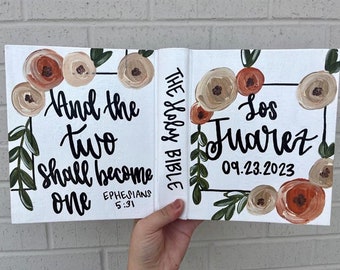 And the
two
shall become
one EPHESIANS
5:31
THE Holy BIBLE
Los
Juarez
09.23.2023